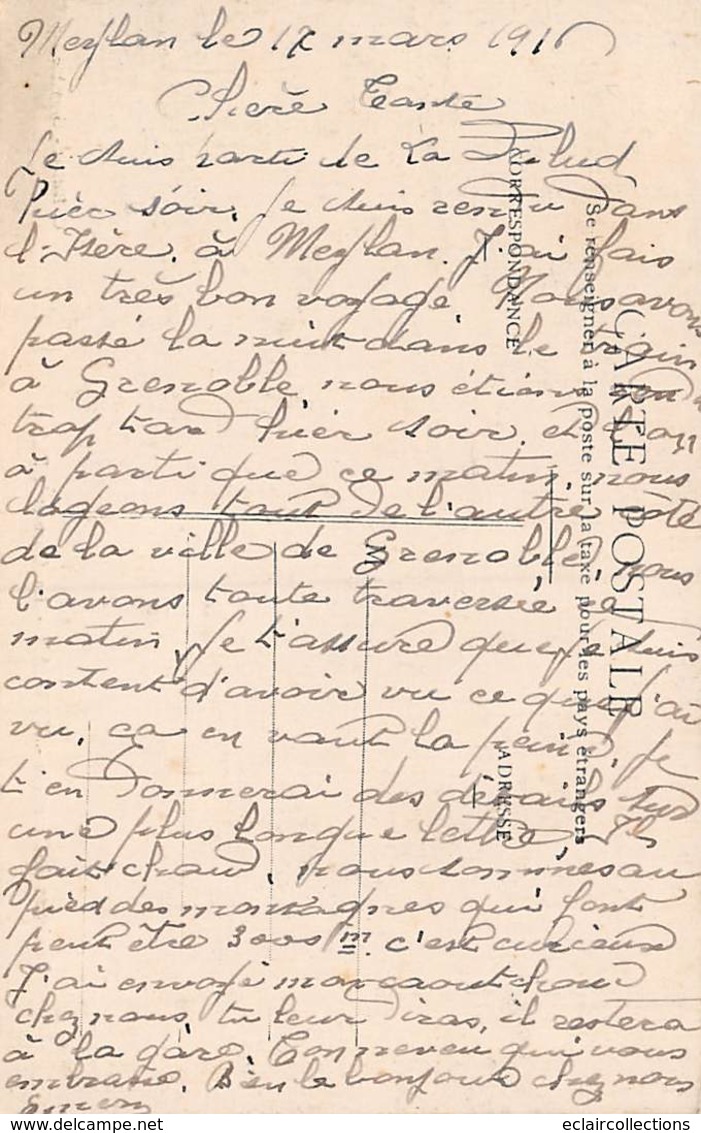 Meylan le 17 mars 1916
Chère Tante
Je suis parti de La Palud
hier soir. Je suis rendu dans
l'Isère. à Meylan. J'ai fais
un très bon voyage Nous avons
passé la nuit dans le train
à Grenoble nous étions
trop tard hier soir. et
à parti que ce matin. nous
logeons tout de l'autre côté
de la ville de Grenoble, nous
l'avons toute traversée ce
matin Je t'assure que je suis
content d'avoir vu ce que j'ai
vu, ça en vaut la peine, Je
t'en donnerai des détails sur
une plus longue lettre, Il
fait chaud, nous sommes au
pied des montagnes qui font
peut être 3000 m. c'est curieux
J'ai envoyé mon caoutchouc
chez nous, tu leur diras, il restera
à la gare. Ton neveu qui vous
embrasse. Bien le bonjour chez nous
CARTE POSTALE
Se renseigner à la poste sur la taxe pour les pays étrangers
CORRESPONDANCE
ADRESSE
M
eclaircollections@delcampe.net